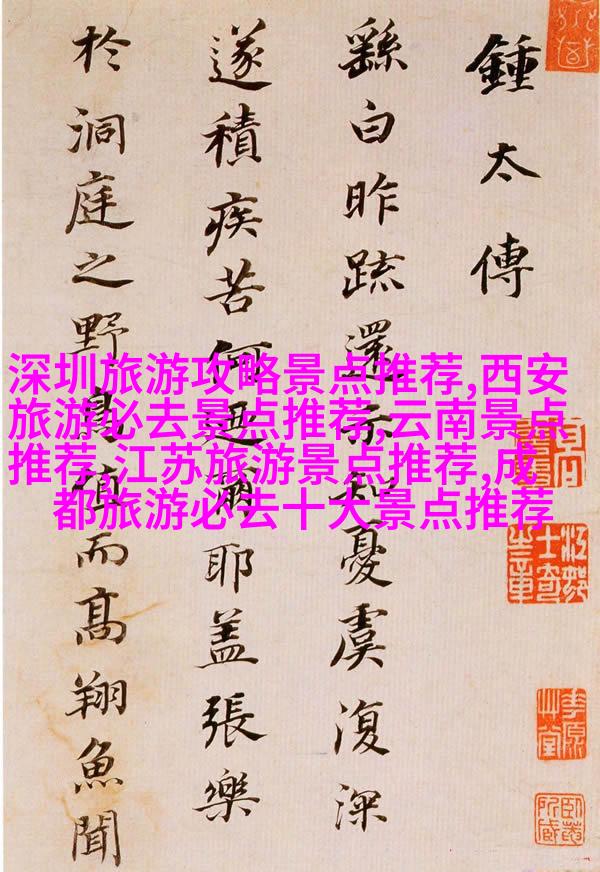 鍾太傅
繇白昨疏還示知憂虞復深
遂積疾苦何迺爾耶蓋張樂
於洞庭之野鳥值而高翔魚聞
深圳旅游攻略景点推荐,西安
旅游必去景点推荐,云南景点
推荐,江苏旅游景点推荐,成
都旅游必去十大景点推荐